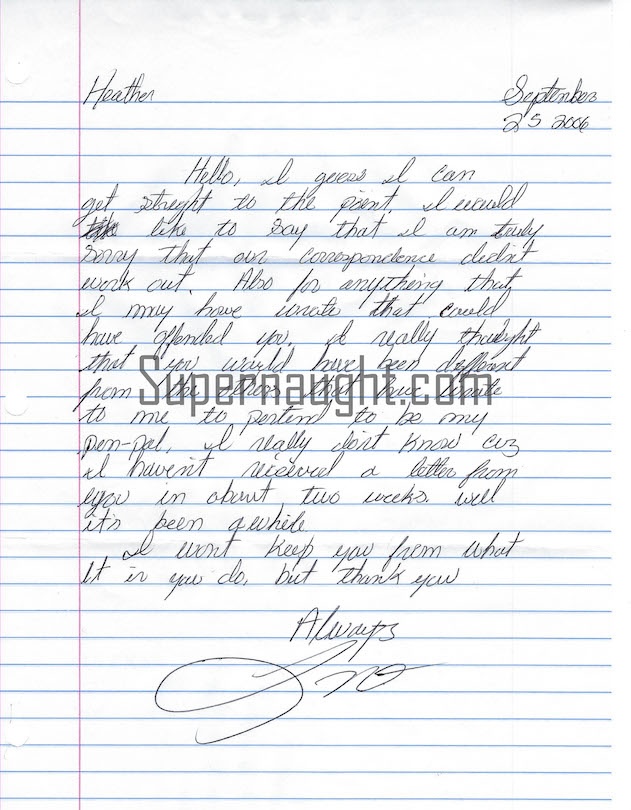 Heather
September
25 2006
Hello, I guess I can
get streght to the point. I would
like to say that I am truly
sorry that our correspondence didn't
work out. Also for anything that
I may have wrote that could
have offended you. I really thought
that you would have been different
Supernaught.com
from the others that have wrote
to me to pertend to be my
pen-pal. I really don't know cuz
I haven't received a letter from
you in about two weeks. well
it's been awhile
I wont keep you from what
It is you do, but thank you
Always